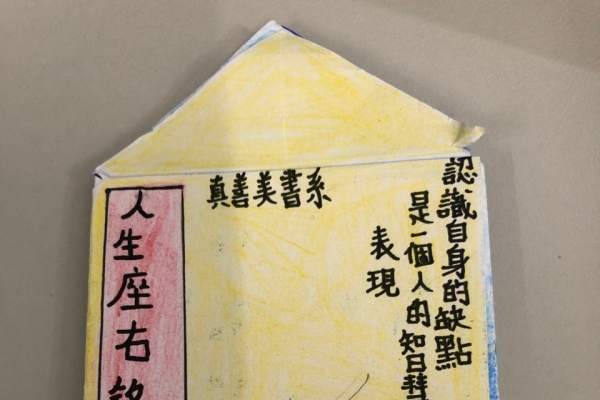 真善美書系
認識自身的缺點
是一個人的智慧
表現
人生座右銘